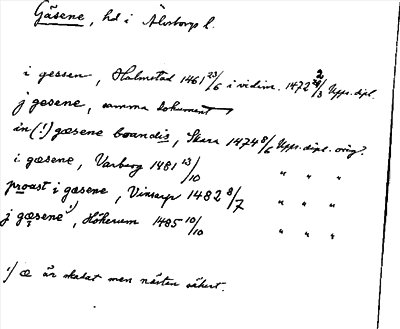 Gäsene, hd i Älvsborgs l.
i gessen, Halmstad 1461 23/6 i vidim. 1472 22/3 Upps. dipl.
j gesene, samma dokument
in (!) gæsene boandis, Skara 1474 8/6 Upps. dipl. orig.
i gæsene, Varberg 1481 13/10 " " "
proast i gæsene, Vinsarp 1482 8/7 " " "
j gæsene 1), Hökerum 1485 10/10 " " "
1) æ är skadat men nästan säkert.